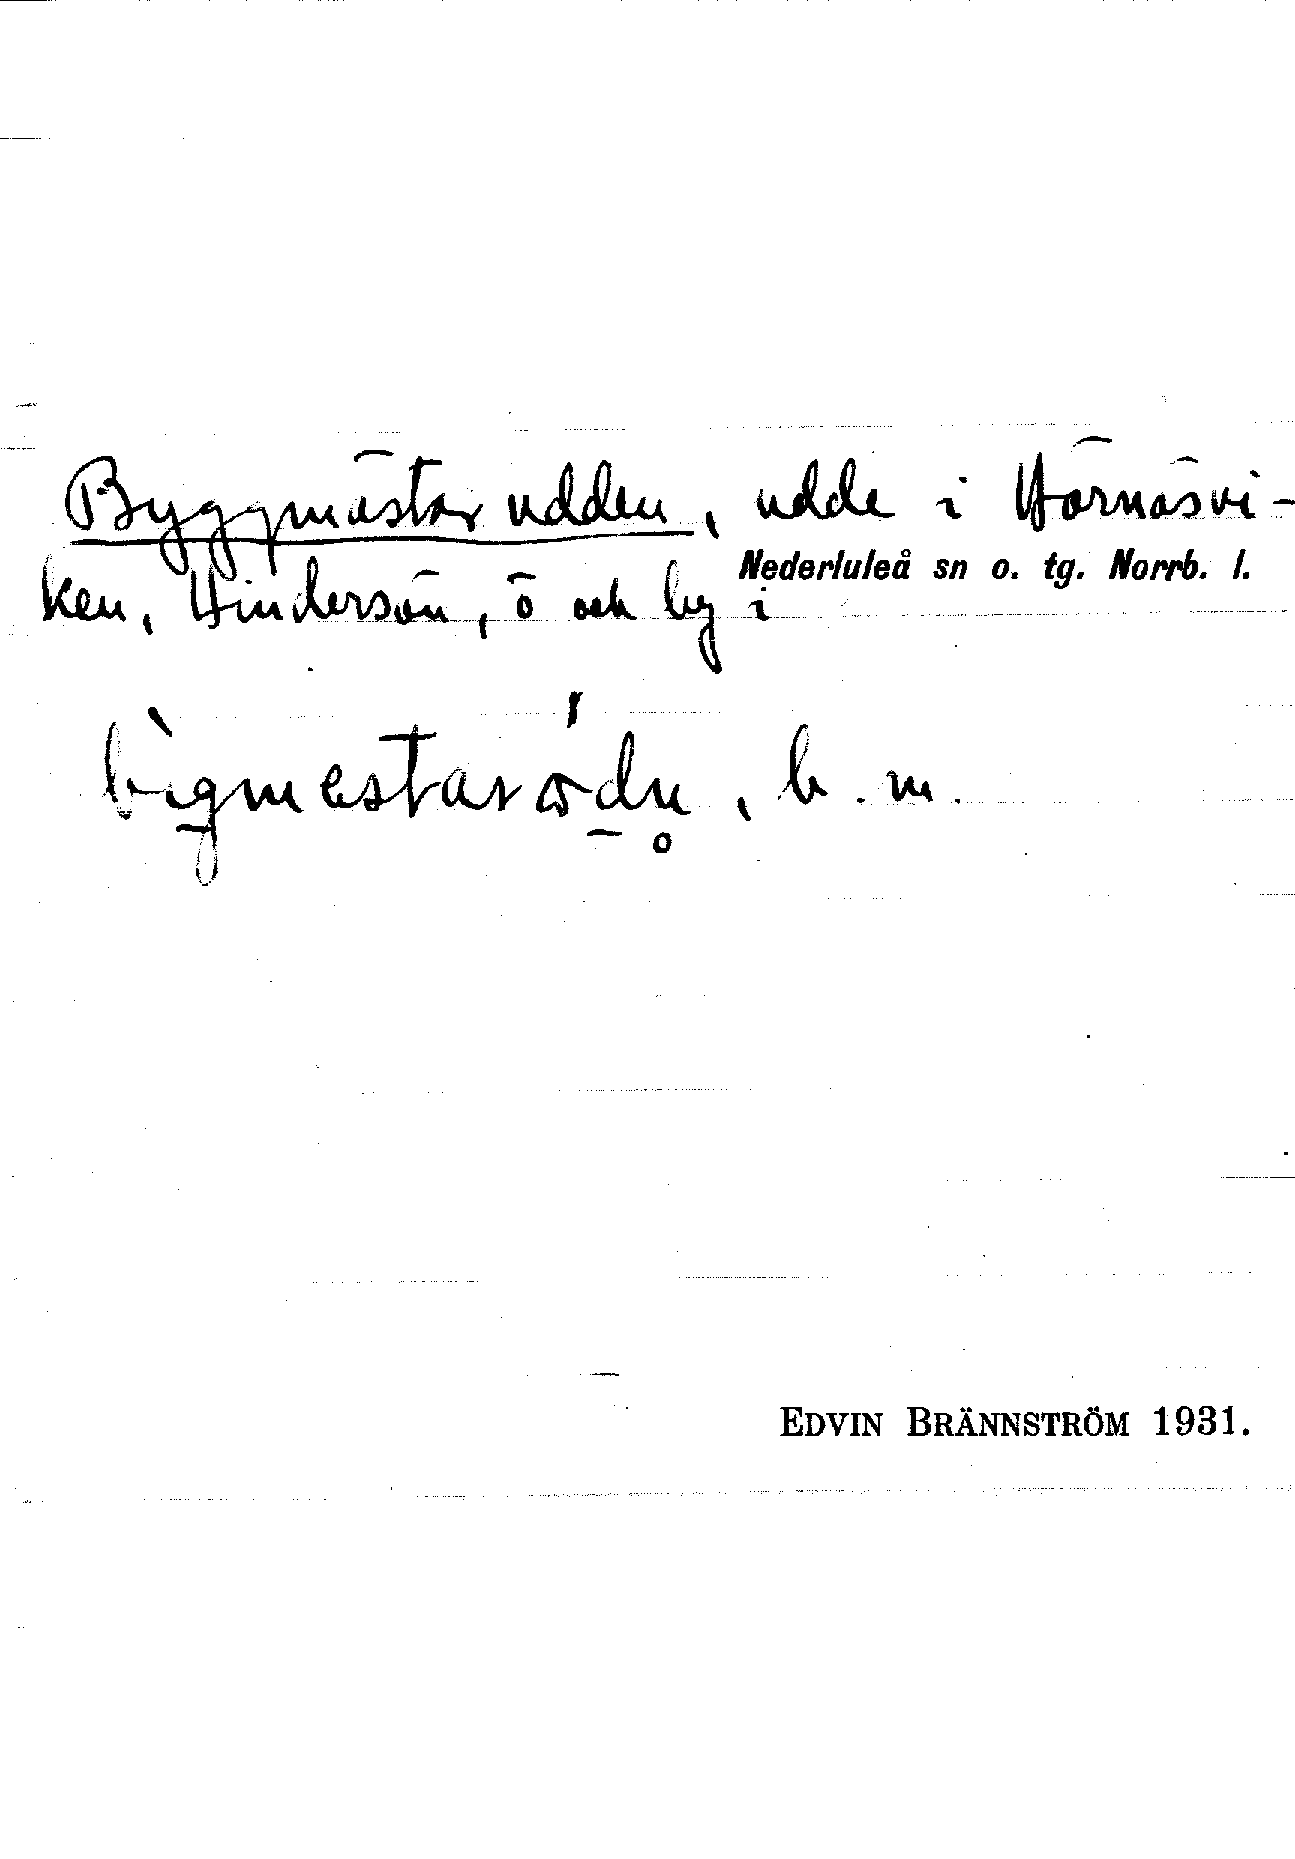 Byggmästarudden, udde i Hörnäsvi-
ken, Hindersön, ö och by i Nederluleå sn o. tg. Norrb. l.
bìgmestarώdn̥, b.m.
EDVIN BRÄNNSTRÖM 1931.